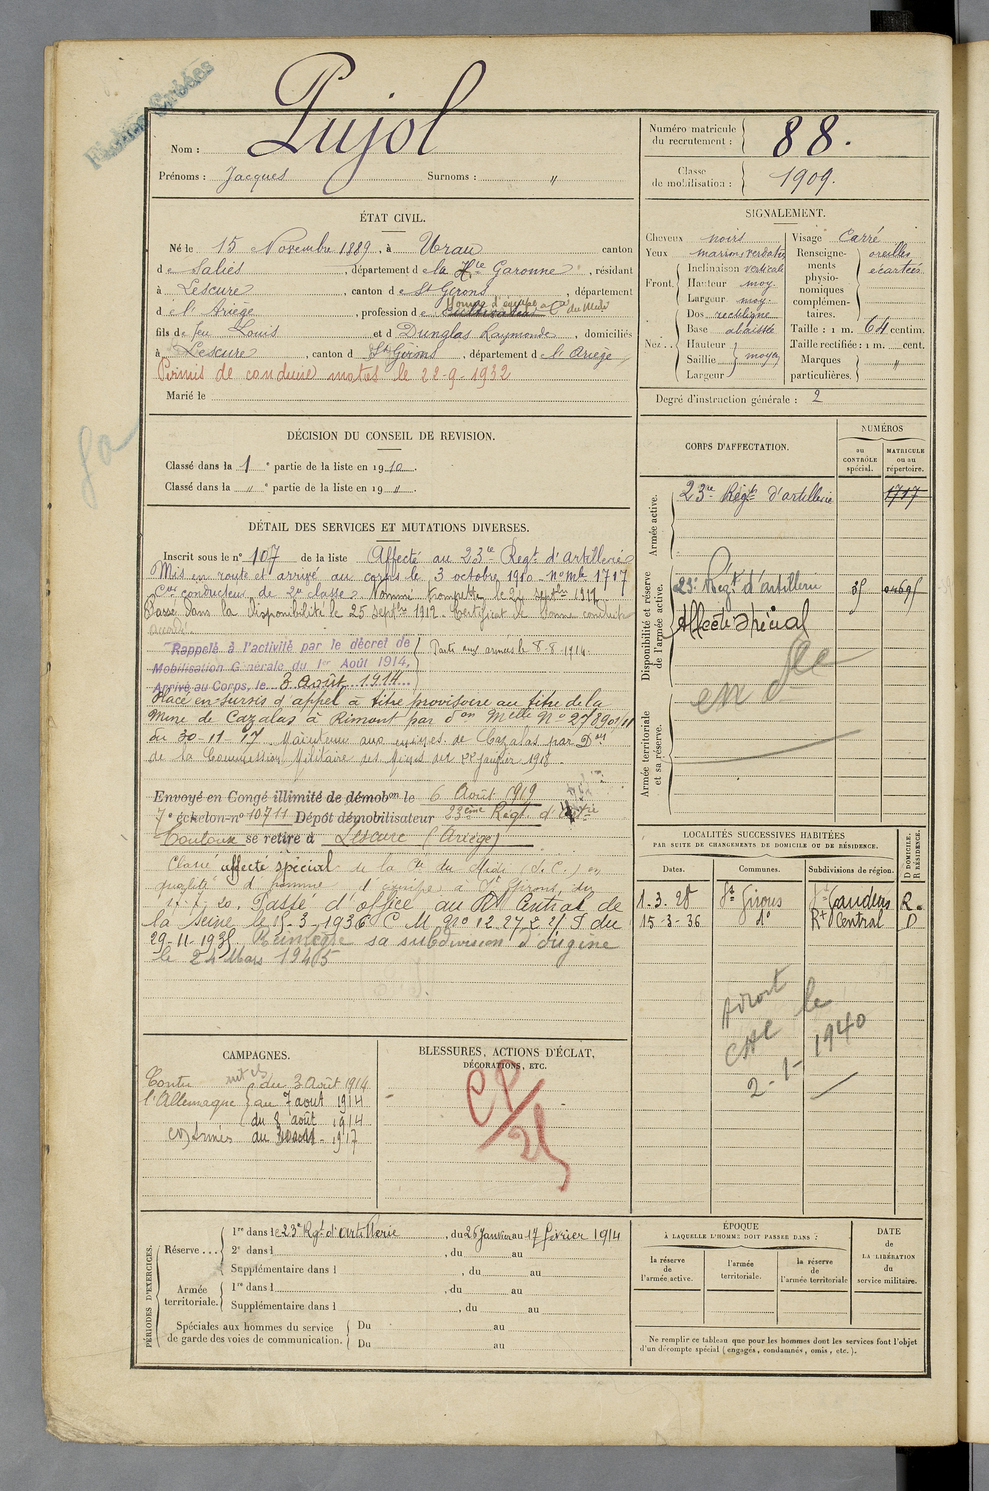 Fiches Créées
Nom : Pujol
Prénoms : Jacques Surnoms : "
Numéro matricule du recrutement : 88.
Classe de mobilisation : 1909.
ÉTAT CIVIL.
Né le 15 Novembre 1889, à Urau canton
de Salies, département de la Hte Garonne, résidant
à Lescure, canton de St Girons, département
de l'Ariège, profession de cultivateur Homme d'équipe à Cie du Midi
fils de feu Louis et d Dunglas Raymonde, domiciliés
à Lescure, canton d St Girons, département de l'Ariège
Permis de conduire motos le 22-9-1932
Marié le
SIGNALEMENT.
Cheveux noirs
Yeux marrons verdatres
Front. Inclinaison verticale
Hauteur moy.
Largeur moy.
Nez.. Dos rectiligne
Base abaissée
Hauteur
Saillie moyen
Largeur
Visage Carré
Renseignements physionomiques complémentaires. oreilles écartées
Taille : 1 m. 64 centim.
Taille rectifiée : 1 m. cent.
Marques particulières. "
Degré d'instruction générale : 2
DÉCISION DU CONSEIL DE REVISION.
Classé dans la 1e partie de la liste en 1910.
Classé dans la " e partie de la liste en 19 ".
CORPS D'AFFECTATION.
NUMÉROS
au CONTRÔLE spécial.
MATRICULE ou au répertoire.
Armée active.
23me Régt d'artillerie 1717
Disponibilité et réserve de l'armée active.
23e Régt d'artillerie
Affecté Spécial
en
Armée territoriale et sa réserve.
DÉTAIL DES SERVICES ET MUTATIONS DIVERSES.
Inscrit sous le n° 107 de la liste Affecté au 23me Regt d'Artillerie
Mis en route et arrivé au corps le 3 octobre 1910 - No Mle 1717
Cer conducteur de 2e classe. Nommé trompette le 24 septbre 1911
Passé dans la Disponibilité le 25 septbre 1912. Certificat de bonne conduite
accordé.
Rappelé à l'activité par le décret de
Mobilisation Générale du 1er Août 1914,
Arrivé au Corps, le 3 Août 1914.
Parti aux armées le 8-8-1914.
Placé en sursis d'appel à titre provisoire au titre de la
Mine de Cazalas à Rimont par don Melle No 27290 1/11
du 30-11-17. Maintenu aux mines de Cazalas par Don
de la Commission Militaire des Mines du 22 janvier 1918
Envoyé en Congé illimité de démobon le 6 Août 1919
7e échelon - n° 10711 Dépôt démobilisateur 23ème Régt d'Artie
Toulouse se retire à Lescure (Ariège)
Classé affecté spécial de la Cie du Midi (S.C.) en
qualité d'homme d'équipe à St Girons, du
Passé d'office au Rt Central de
la Seine le 15-3-1936 C M No
29-11-1935 Réintègre sa subdivision d'origine
le 24 Mars
LOCALITÉS SUCCESSIVES HABITÉES
PAR SUITE DE CHANGEMENTS DE DOMICILE OU DE RÉSIDENCE.
Dates. Communes. Subdivisions de région. D DOMICILE. R RÉSIDENCE.
1-3-28 St Girons St Gaudens R.
15-3-36 do Rt Central D
CAC le
2-1-1940
CAMPAGNES.
Contre l'Allemagne
du 3 Août 1914
au 7 août 1914
du 8 août 1914
BLESSURES, ACTIONS D'ÉCLAT,
DÉCORATIONS, ETC.
PÉRIODES D'EXERCICES.
Réserve... 1re dans le 23e Rgt d'artillerie, du 26 Janvier au 17 février 1914
2e dans l , du au
Supplémentaire dans l , du au
Armée territoriale. 1re dans l , du au
Supplémentaire dans l , du au
Spéciales aux hommes du service de garde des voies de communication. Du au
Du au
ÉPOQUE
À LAQUELLE L'HOMME DOIT PASSER DANS :
la réserve de l'armée active.
l'armée territoriale.
la réserve de l'armée territoriale
DATE
de
LA LIBÉRATION
du
service militaire.
Ne remplir ce tableau que pour les hommes dont les services font l'objet
d'un décompte spécial (engagés, condamnés, omis, etc.).